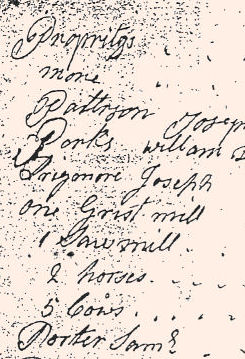 more
Pattrson Joseph
Parks william
Prigmore Joseph
one Grist mill
1 Sawmill.
2 horses.
5 Cows.
Porter Saml